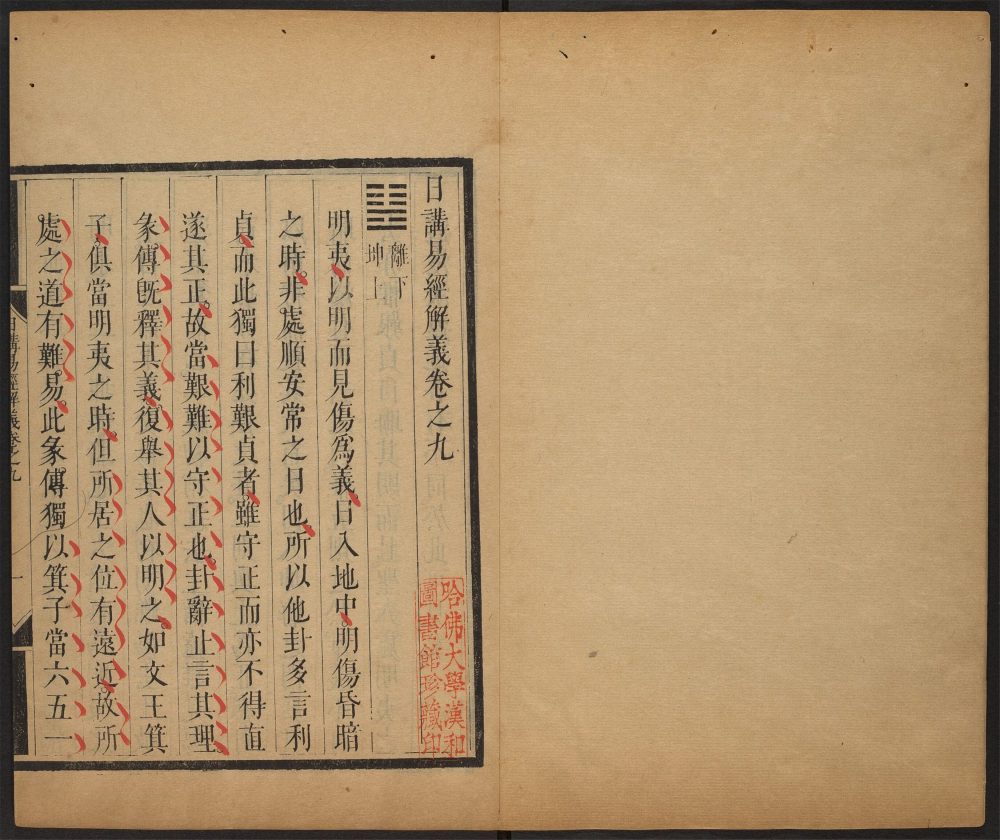 日講易經解義卷之九
離下
坤上
明夷以明而見傷爲義日入地中明傷昏暗
之時非處順安常之日也所以他卦多言利
貞而此獨曰利艱貞者雖守正而亦不得直
遂其正故當艱難以守正也卦辭止言其理
彖傳旣釋其義復舉其人以明之如文王箕
子俱當明夷之時但所居之位有遠近故所
處之道有難易此彖傳獨以箕子當六五一
日講易經解義卷之九
一
哈佛大學漢和
圖書館珍藏印